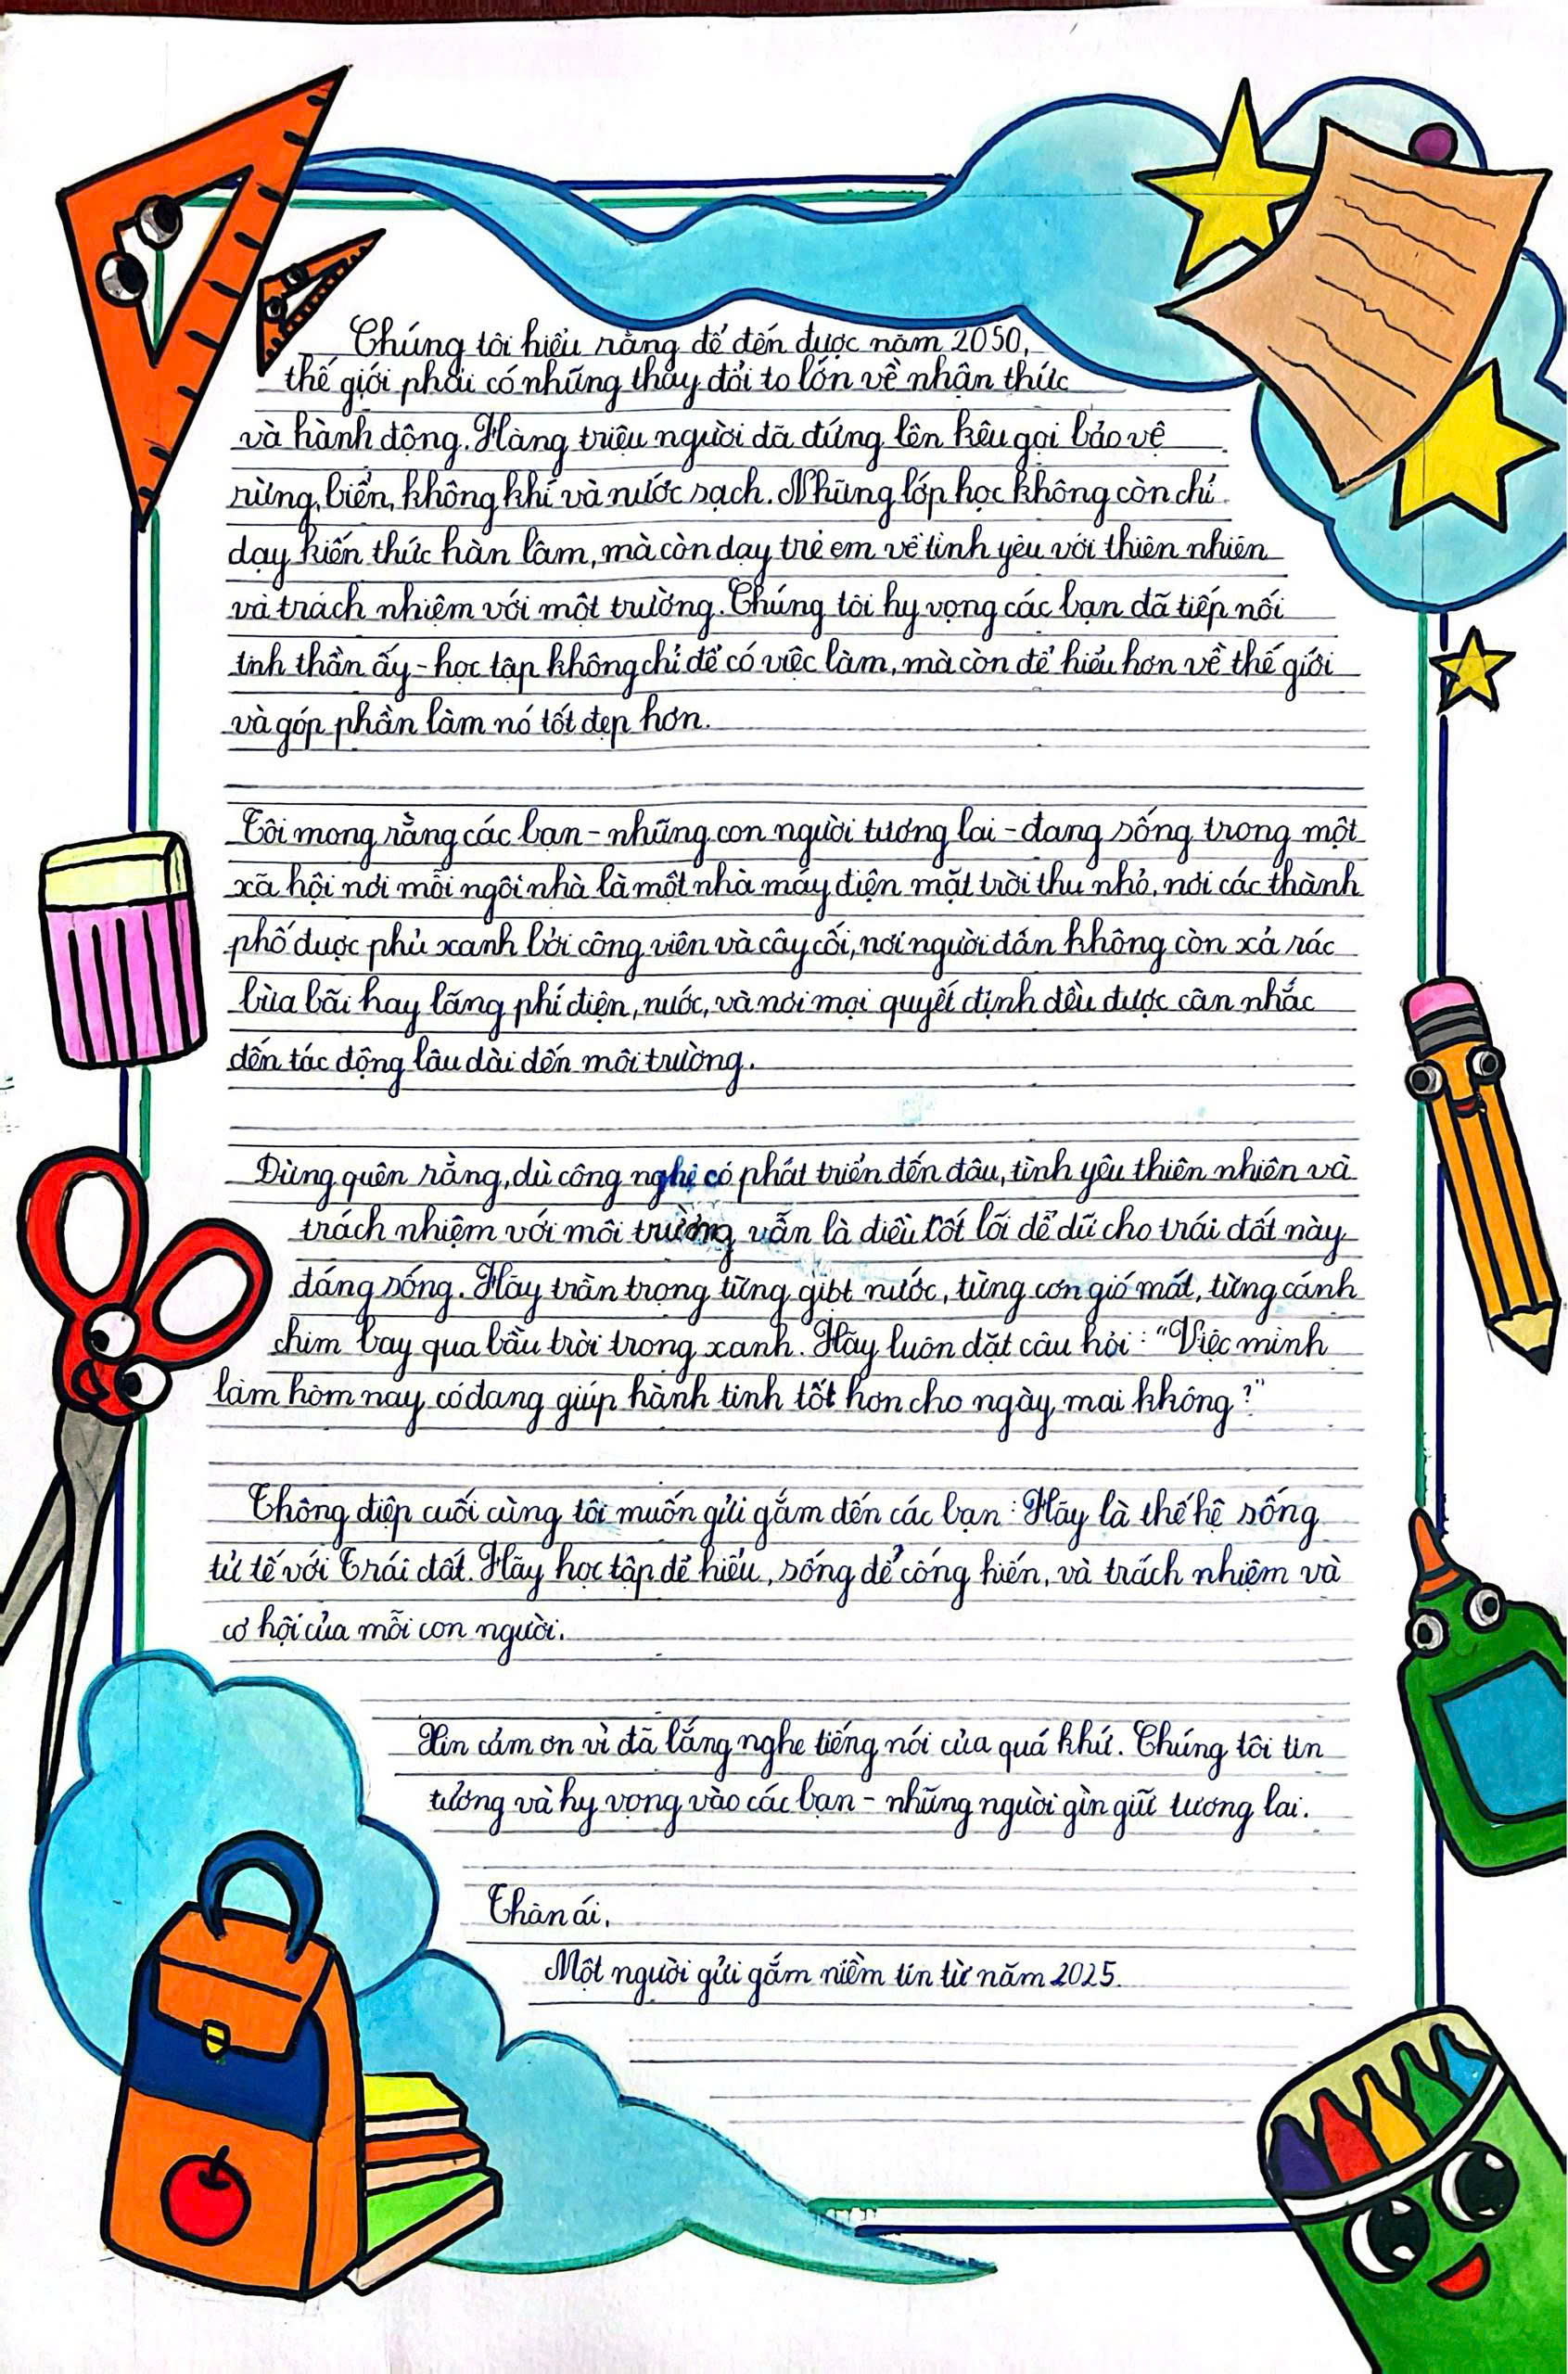 Chúng tôi hiểu rằng để đến được năm 2050,
thế giới phải có những thay đổi to lớn về nhận thức
và hành động. Hàng triệu người đã đứng lên kêu gọi bảo vệ
rừng, biển, không khí và nước sạch. Những lớp học không còn chỉ
dạy kiến thức hàn lâm, mà còn dạy trẻ em về tình yêu với thiên nhiên
và trách nhiệm với một trường. Chúng tôi hy vọng các bạn đã tiếp nối
tinh thần ấy - học tập không chỉ để có việc làm, mà còn để hiểu hơn về thế giới
và góp phần làm nó tốt đẹp hơn.
Tôi mong rằng các bạn - những con người tương lai - đang sống trong một
xã hội nơi mỗi ngôi nhà là một nhà máy điện mặt trời thu nhỏ, nơi các thành
phố được phủ xanh bởi công viên và cây cối, nơi người dấn không còn xả rác
bừa bãi hay lãng phí điện, nước, và nơi mọi quyết định đều được cân nhắc
đến tác động lâu dài đến môi trường.
Đừng quên rằng, dù công nghệ có phát triển đến đâu, tình yêu thiên nhiên và
trách nhiệm với môi trường vẫn là điều cốt lõi để dữ cho trái đất này
đáng sống. Hãy trần trọng từng giọt nước, từng cơn gió mát, từng cánh
chim bay qua bầu trời trong xanh. Hãy luôn đặt câu hỏi: "Việc mình
làm hôm nay có đang giúp hành tinh tốt hơn cho ngày mai không?"
Thông điệp cuối cùng tôi muốn gửi gắm đến các bạn: Hãy là thế hệ sống
tử tế với Trái đất. Hãy học tập để hiểu, sống để cống hiến, và trách nhiệm và
cơ hội của mỗi con người.
Xin cảm ơn vì đã lắng nghe tiếng nói của quá khứ. Chúng tôi tin
tưởng và hy vọng vào các bạn - những người gìn giữ tương lai.
Thân ái,
Một người gửi gắm niềm tin từ năm 2025.